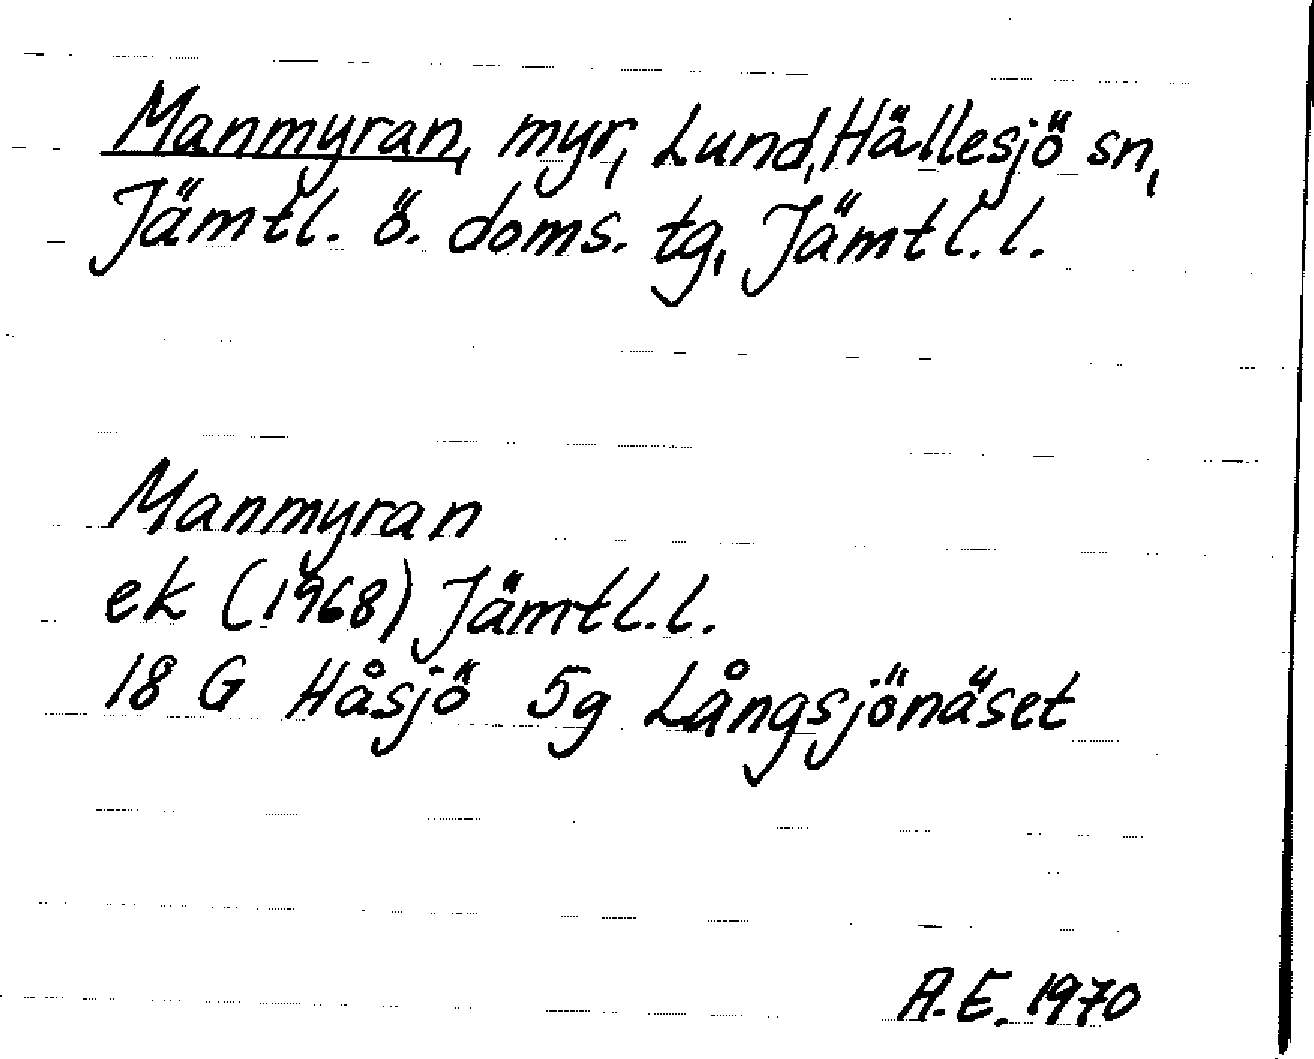 Manmyran, myr, Lund, Hällesjö sn,
Jämtl. ö. doms. tg, Jämtl. l.
Manmyran
ek (1968) Jämtl. l.
18 G Håsjö 5g Långsjönäset
A.E. 1970